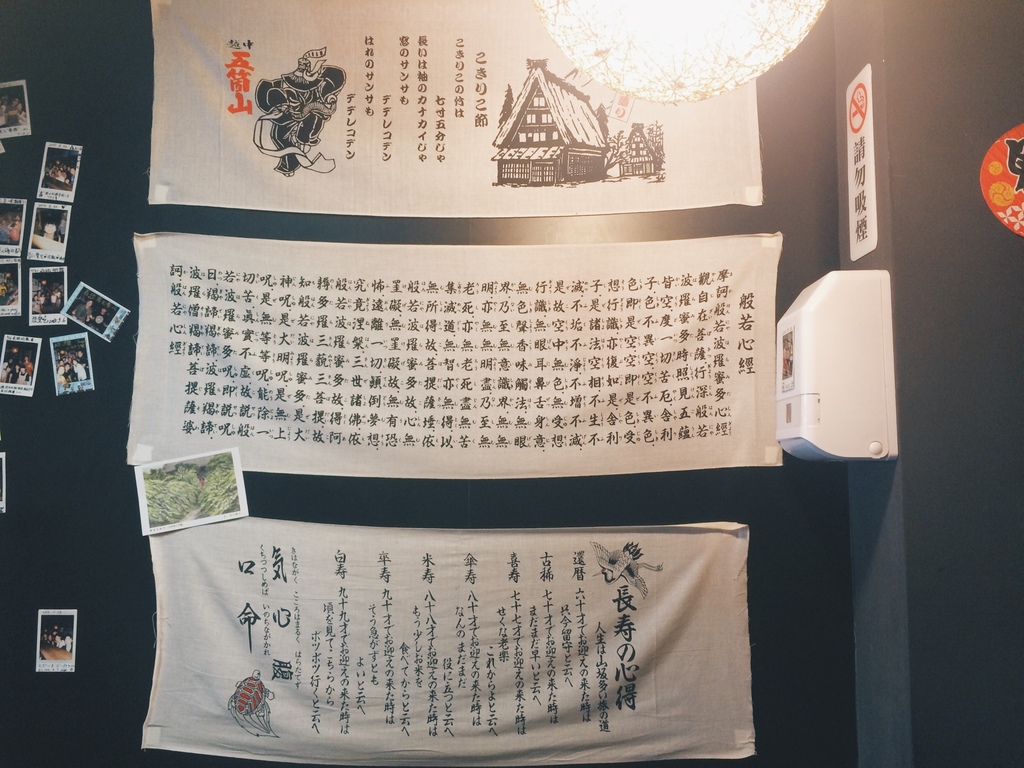 こきりこ節
こきりこの竹は
七寸五分じゃ
長いは袖のカナカイじゃ
窓のサンサも
デデレコデン
はれのサンサも
デデレコデン
越中
五箇山
請勿吸煙
般若心經
摩訶般若波羅蜜多心經
觀自在菩薩行深般若
波羅蜜多時照見五蘊
皆空度一切苦厄舍利
子色不異空空不異色
色即是空空即是色受
想行識亦復如是舍利
子是諸法空相不生不
滅不垢不淨不增不減
是故空中無色無受想
行識無眼耳鼻舌身意
無色聲香味觸法無眼
界乃至無意識界無無
明亦無無明盡乃至無
老死亦無老死盡無苦
集滅道無智亦無得以
無所得故菩提薩埵依
般若波羅蜜多故心無
罣礙無罣礙故無有恐
怖遠離一切顛倒夢想
究竟涅槃三世諸佛依
般若波羅蜜多故得阿
耨多羅三藐三菩提故
知般若波羅蜜多是大
神呪是大明呪是無上
呪是無等等呪能除一
切苦真實不虛故説般
若波羅蜜多呪即説呪
曰羯諦羯諦波羅羯諦
波羅僧羯諦菩提薩婆
訶般若心經
長寿の心得
人生は山坂多い旅の道
還暦 六十才でお迎えの来た時は
只今留守と云へ
古稀 七十才でお迎えの来た時は
まだまだ早いと云へ
喜寿 七十七才でお迎えの来た時は
せくな老楽
これからよと云へ
傘寿 八十才でお迎えの来た時は
なんのまだまだ
役に立つと云へ
米寿 八十八才でお迎えの来た時は
もう少しお米を
食べてからと云へ
卒寿 九十才でお迎えの来た時は
そう急がずとも
よいと云へ
白寿 九十九才でお迎えの来た時は
頃を見てこちらから
ボツボツ行くと云へ
きはながく こころはまるく はらたてず
気 心 腹
くちつつしめば いのちながかれ
口 命